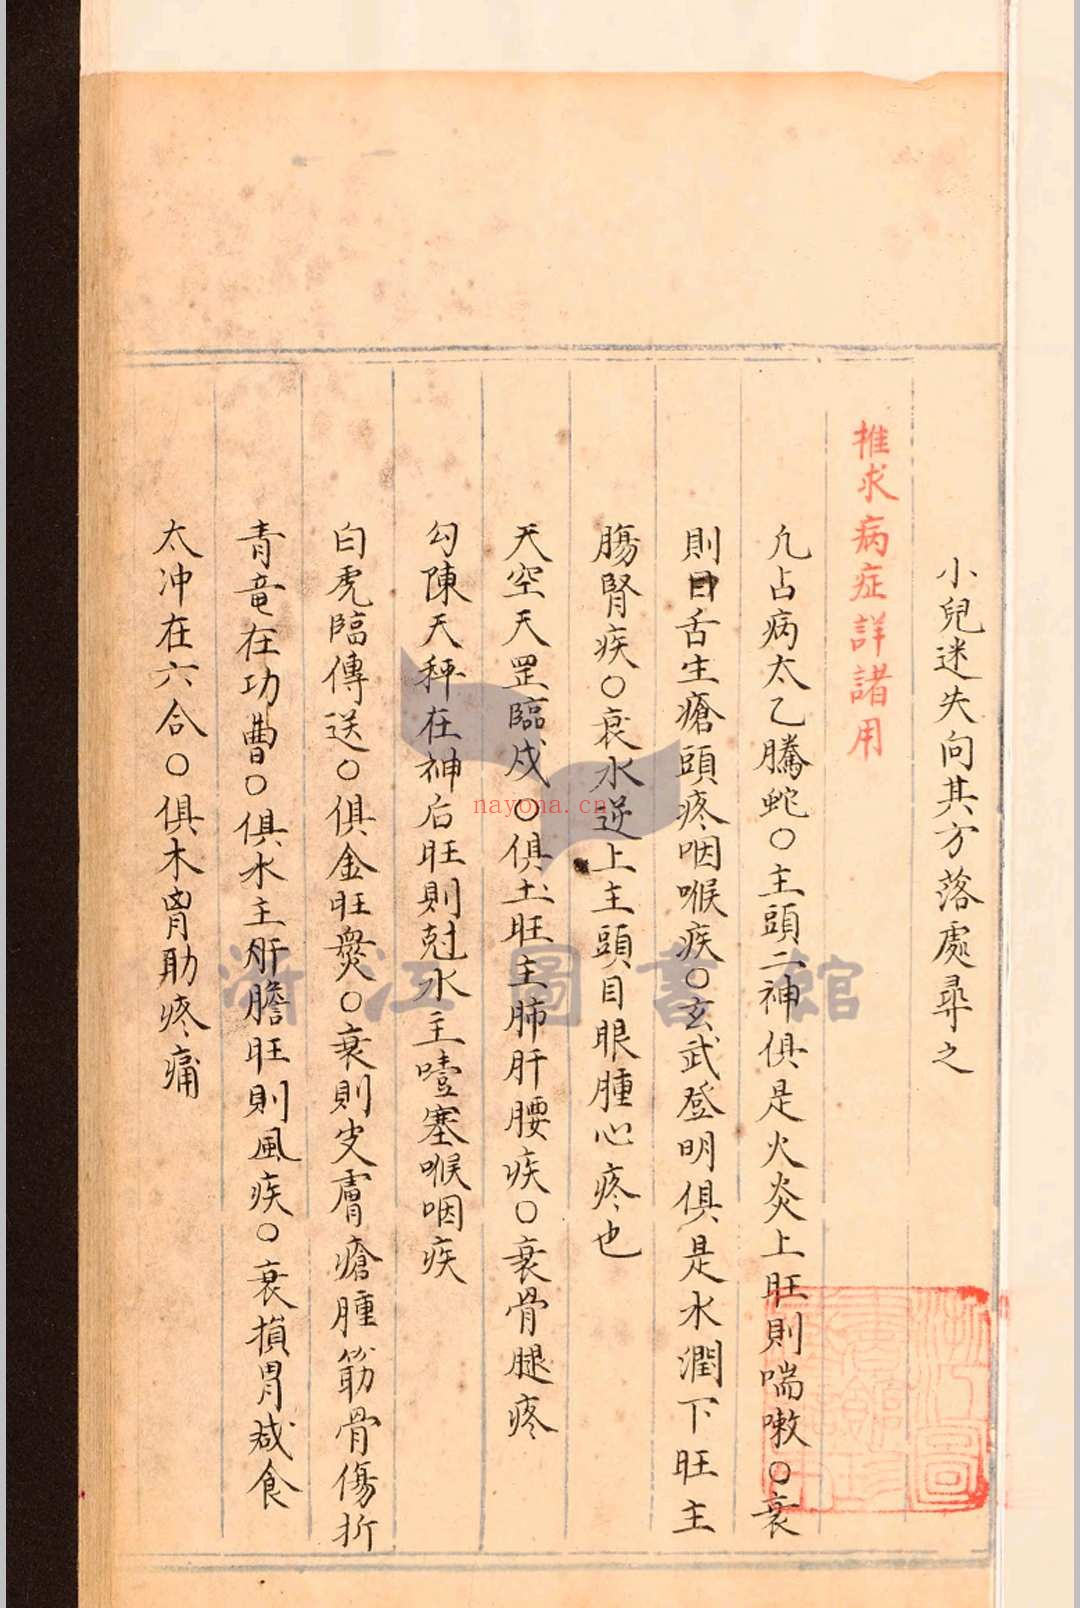 小兒迷失向其方落處尋之
推求病症詳諸用
凢占病太乙騰蛇○主頭二神俱是火炎上旺則喘嗽○衰
則口舌生瘡頭疼咽喉疾○玄武登明俱是水潤下旺主
腸腎疾○衰水逆上主頭目眼腫心疼也
天空天罡臨戍○俱土旺主肺肝腰疾○衰骨腿疼
勾陳天秤在神后旺則尅水主噎塞喉咽疾
白虎臨傳送○俱金旺爕○衰則皮膚瘡腫筋骨傷折
青竜在功曹○俱水主肝膽旺則風疾○衰損胃减食
太冲在六合○俱木胷肋疼痛
nayona.cn
浙江圖書館